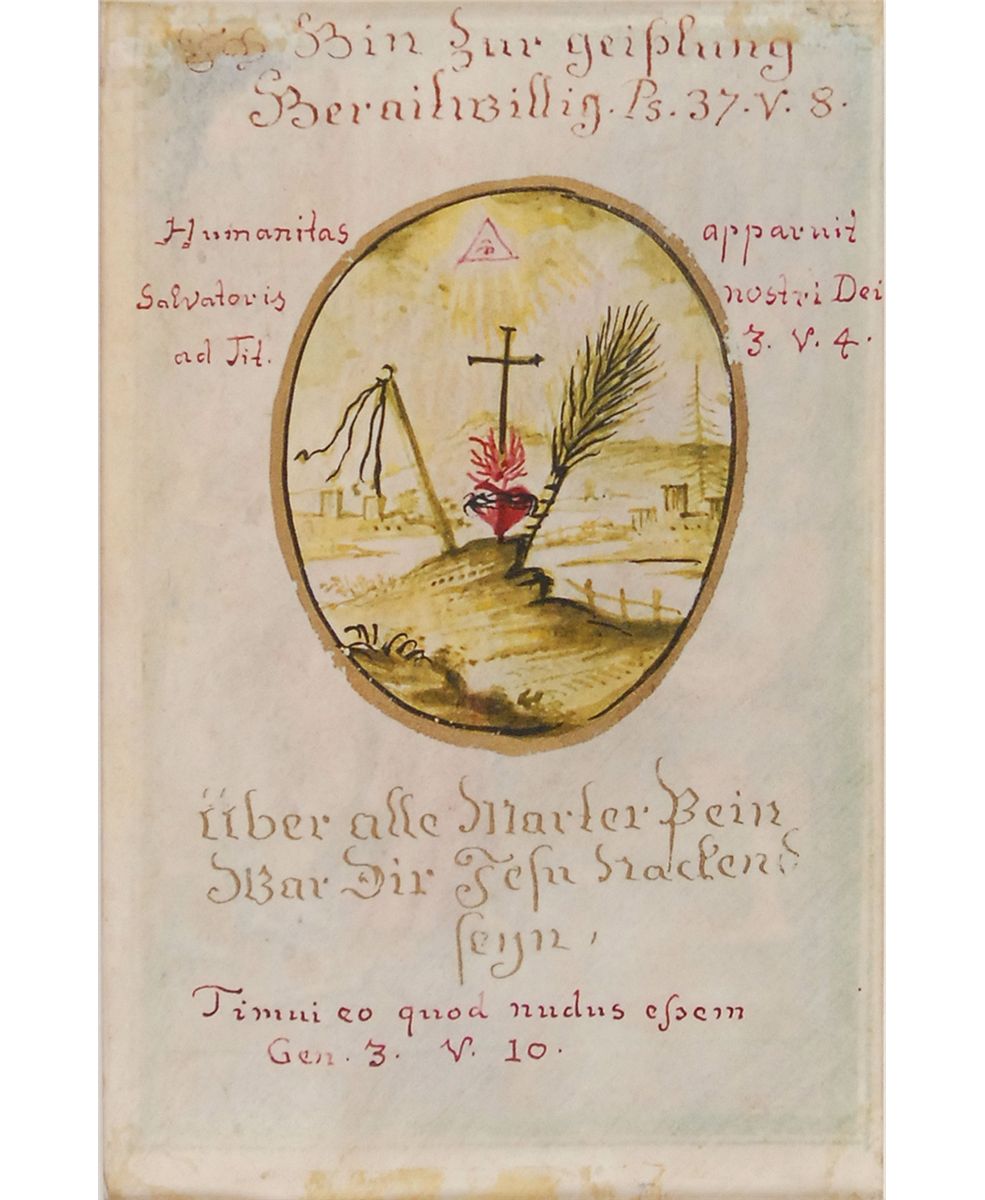 Ich Bin Zur geißlung
Berailwillig. Ps. 37. V. 8.
Humanitas apparuit
Salvatoris nostri Dei
ad Tit. 3. V. 4.
Über alle Marter Pein
War Dir Jesu Nackend
seyn,
Timui eo quod nudus eſsem
Gen. 3. V. 10.